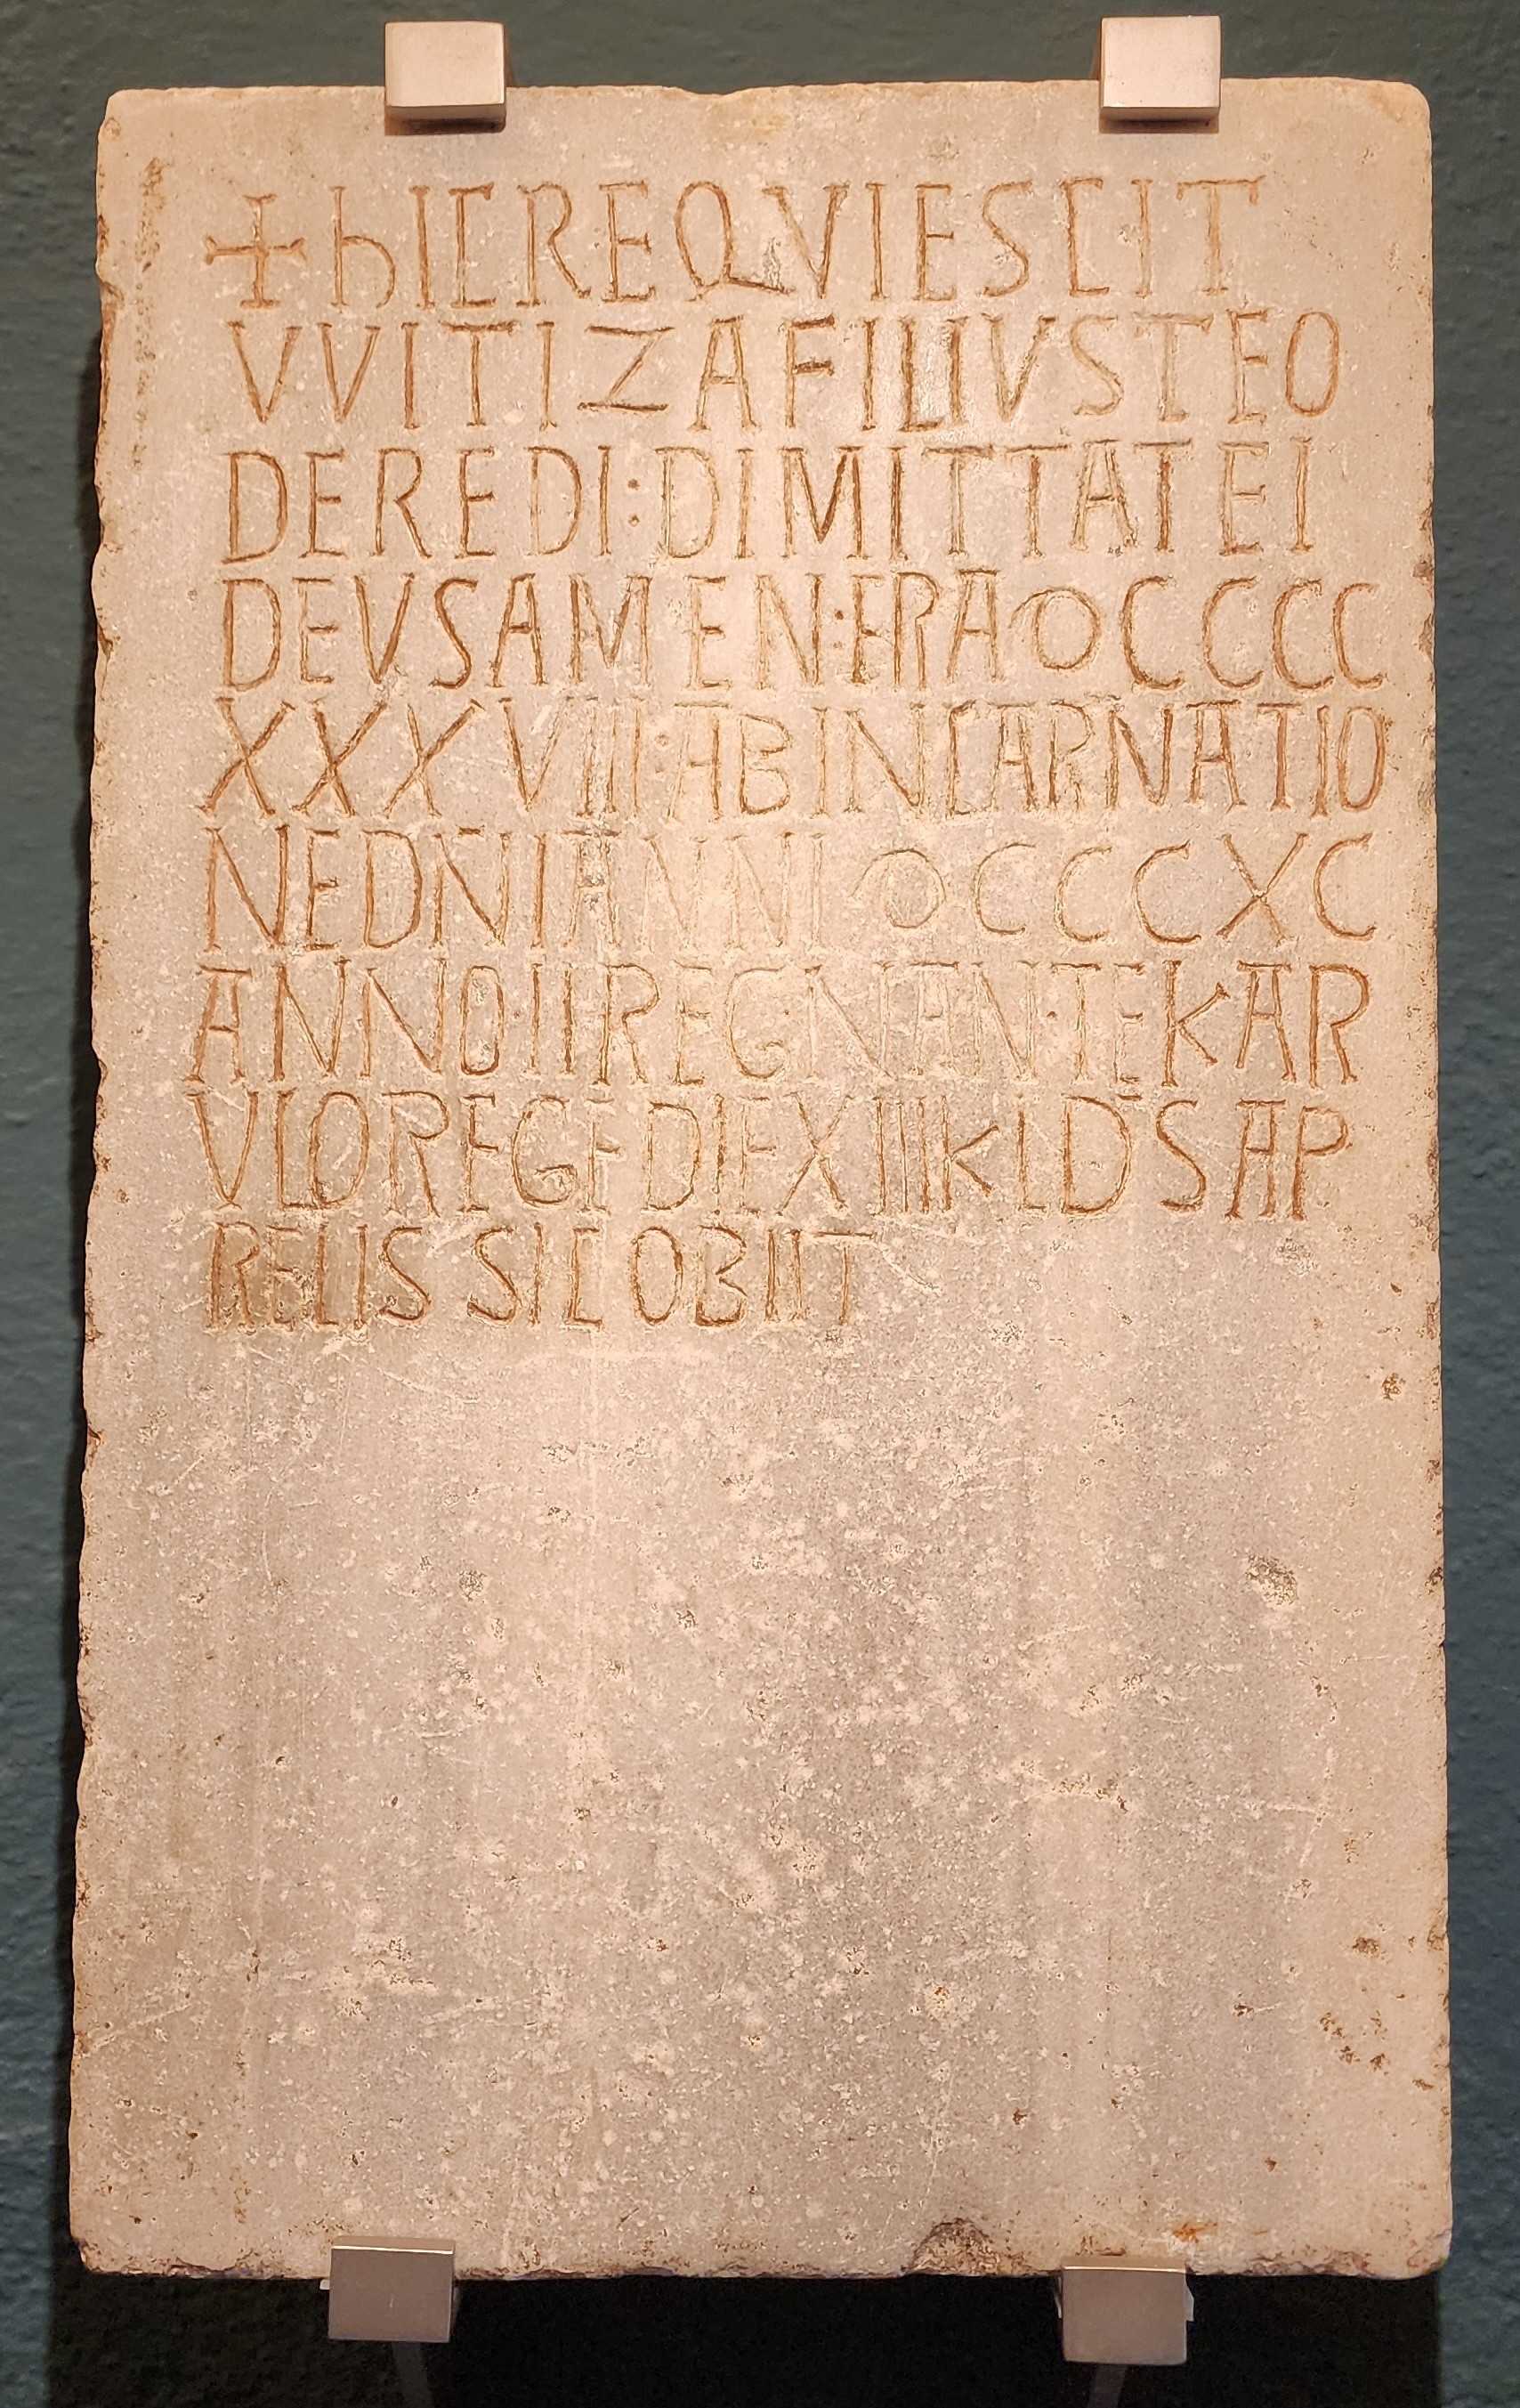 + hIC REQVIESCIT
VVITIZA FILIVS TEO
DEREDI : DIMITTAT EI
DEVS AMEN : ERA ꝹCCCC
XXXVIII : AB INCARNATIO
NE DN̄I ANNI ꝹCCCXC
ANNO · II REG · NAN · TE KAR
VLO REGE DIE XIIII KLDS AP
RELIS SIC OBIIT